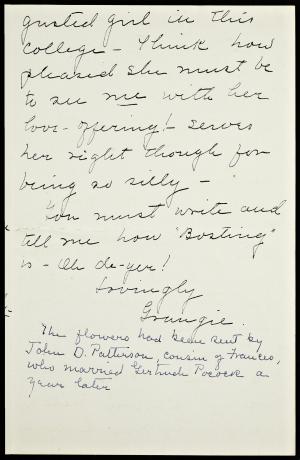 gusted girl in this
college - Think how
pleased she must be
to see me with her
love-offering! - Serves
her right though for
being so silly -
You must write and
tell me how "Bosting"
is - Oh de-yer!
Lovingly
Grangie.
The flowers had been sent by
John D. Patterson, cousin of Frances,
who married Gertrude Pocock a
year later